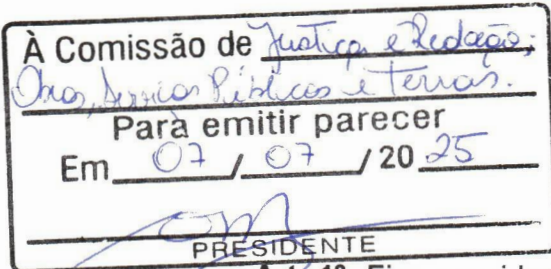 À Comissão de Justiça e Redação;
Obras, Serviços Públicos e Terras.
Para emitir parecer
Em 07 / 07 / 20 25
PRESIDENTE